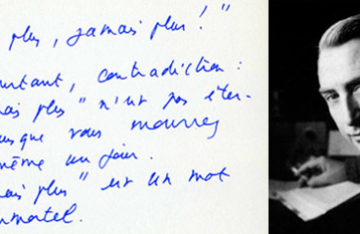 plus, jamais plus !"
urtant, contradiction :
ais plus" n'est pas éter-
usque vous mourrez
même un jour.
ais plus" est un mot
mmortel.